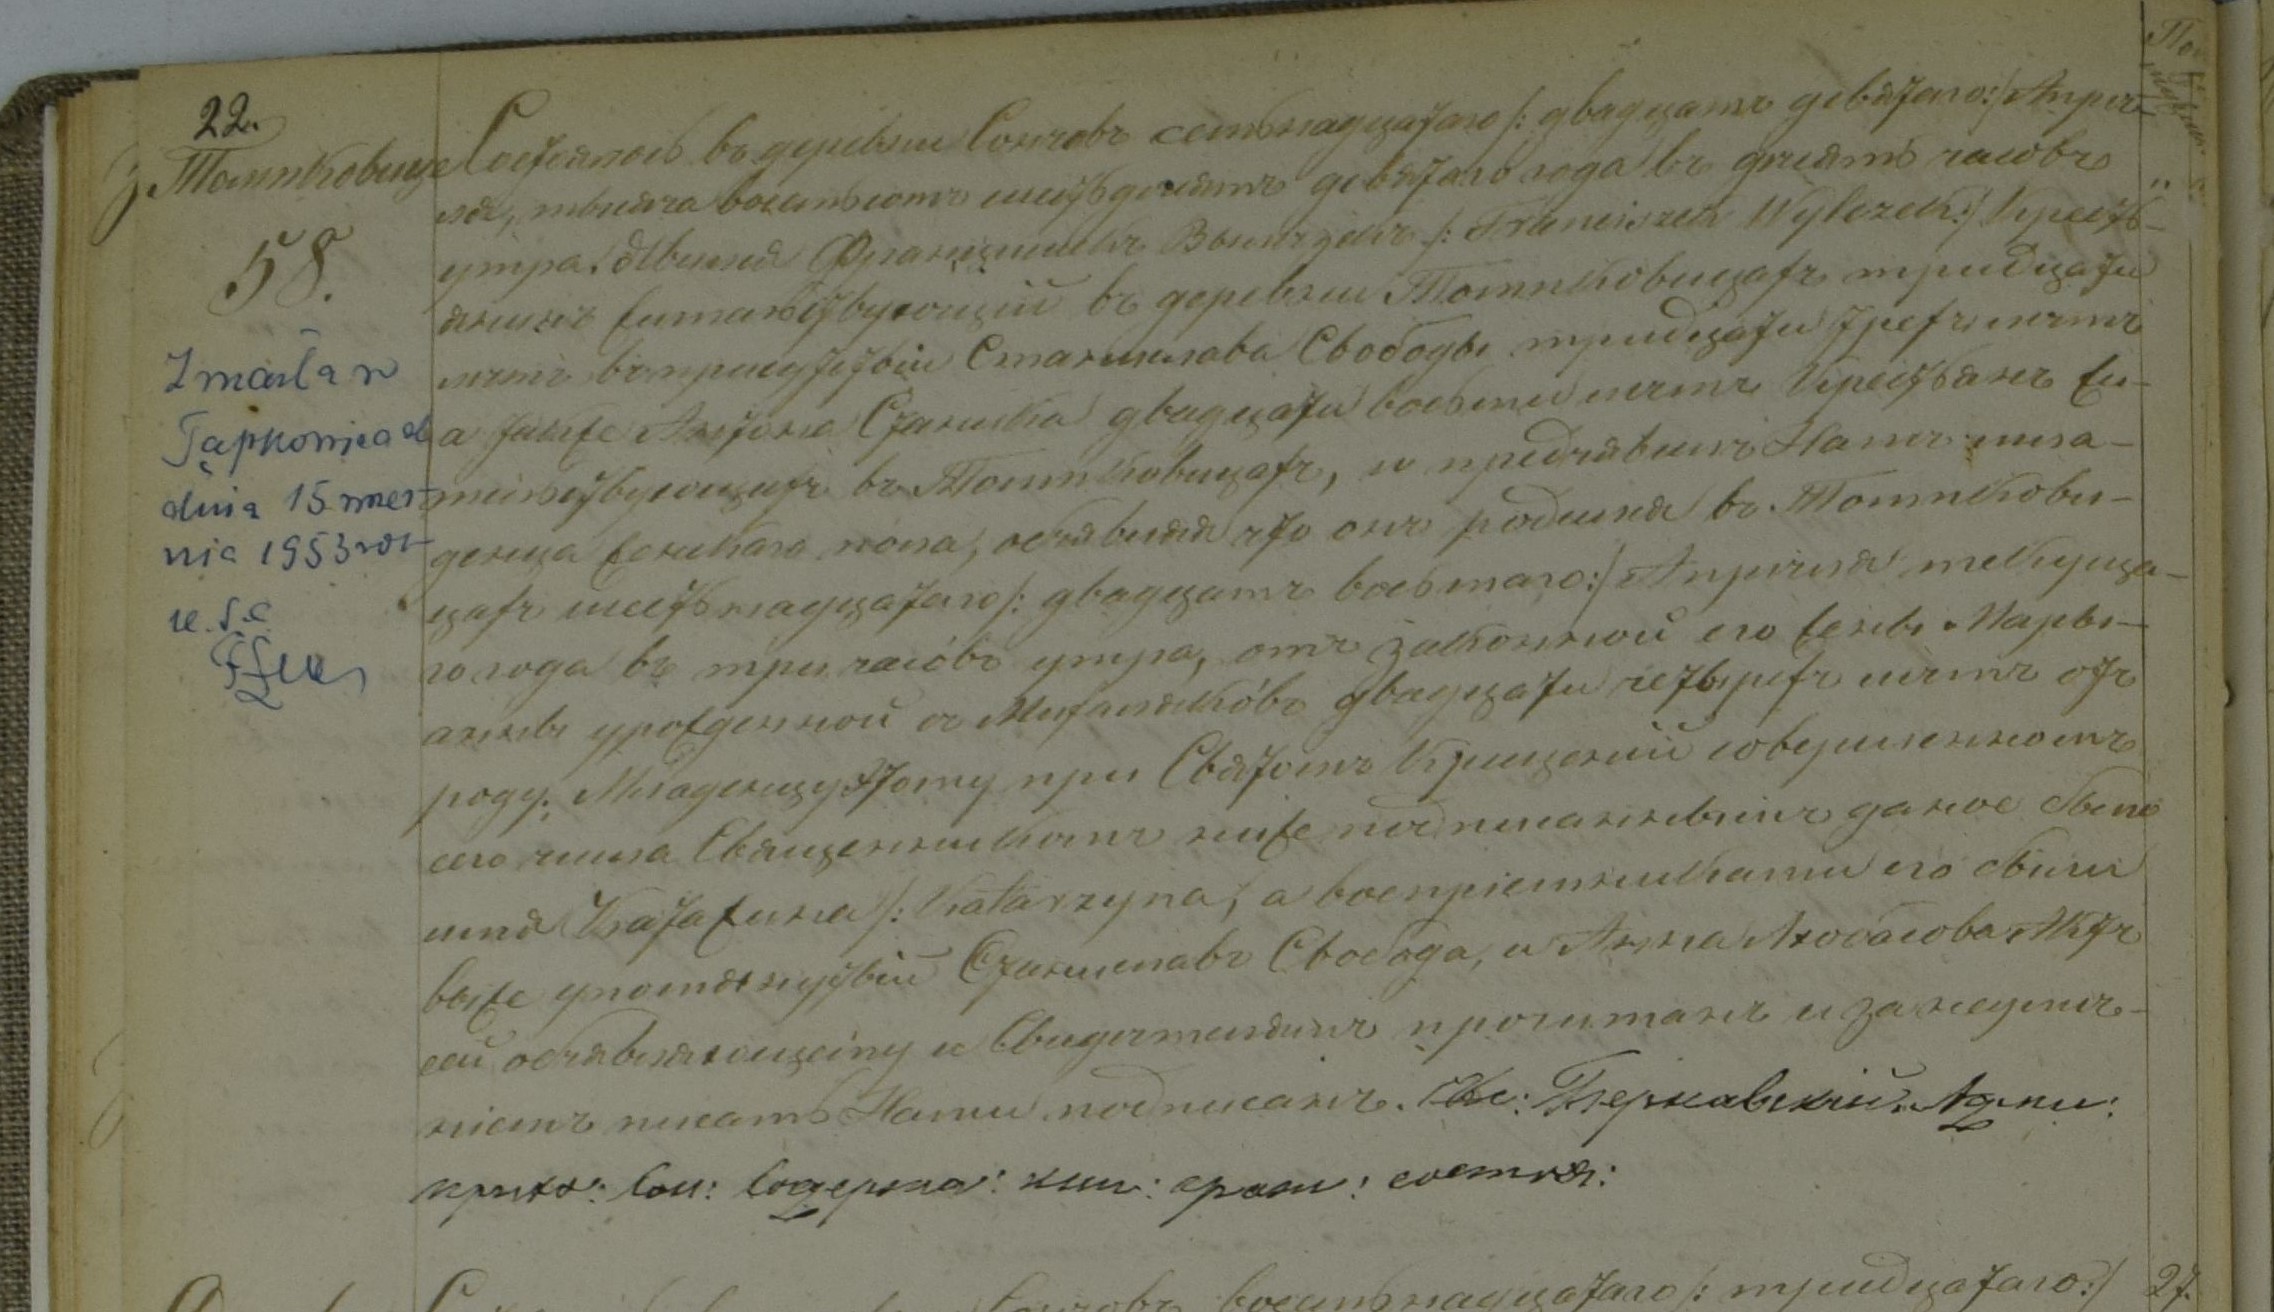 22.
Томпковице
58.
Zmarła w
Tąpkowicach
dnia 15 wrześ-
nia 1953 ro-
Состоялось въ деревни Сончовъ семьнадцатаго /: двадцать девятаго :/ Апрѣ-
ля, тысяча восемьсотъ шестьдесятъ девятаго года въ десять часовъ
утра. Явился Францишекъ Вылезекъ /: Franciszek Wylezek :/ Кресть-
янинъ жительствующій въ деревни Томпковицахъ тридцати
лѣтъ въ присутствіи Станислава Свободы тридцати трехъ лѣтъ
а также Антона Станика двадцати восьми лѣтъ Крестьянъ жи-
тельствующихъ въ Томпковицахъ, и предъявилъ Намъ мла-
денца женскаго пола, объявляя что онъ родился въ Томпкови-
цахъ шестьнадцатаго /: двадцать восьмаго :/ Апрѣля текуща-
го года въ три часовъ утра, отъ законной его жены Марьі-
анны урожденной съ Михаляковъ двадцати четырехъ лѣтъ отъ
роду. Младенцу этому при Святомъ Крещеніи совершенномъ
сего числа Священникомъ ниже подписаннымъ даное было
имя Катажина /: Katarzyna, а воспріемниками его были
выже упомянутый Станиславъ Свобода, и Анна Любасова. Актъ
сей объявляющему и Свидѣтелямъ прочитанъ и за неумѣ-
ніемъ писать Нами подписанъ.
прихо: Сон: Содержа: кни: граж: состоя:
27.